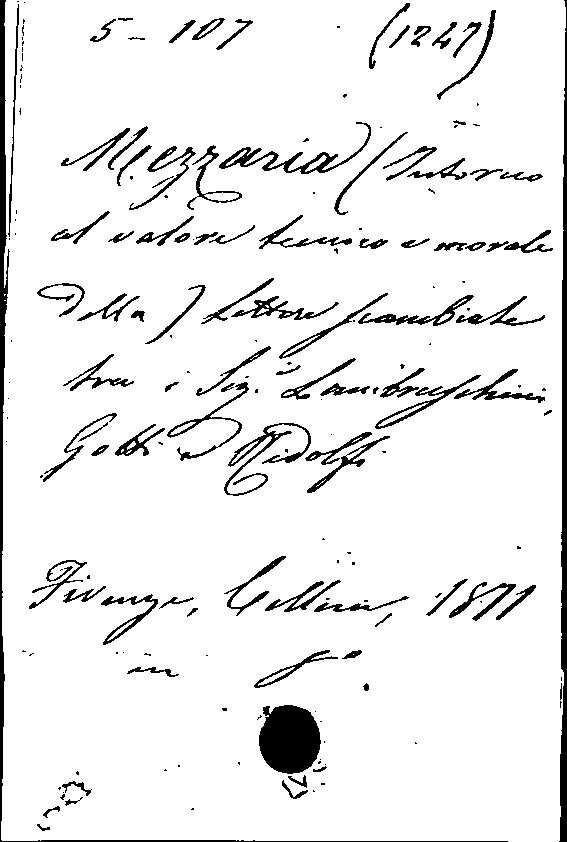 5-107 (1247)
Mezzaria (Intorno
al valore tecnico e morale
della) Lettere scambiate
tra i Sig.i Lambruschini,
Gotti e Ridolfi
Firenze, Cellini, 1871
in 8º